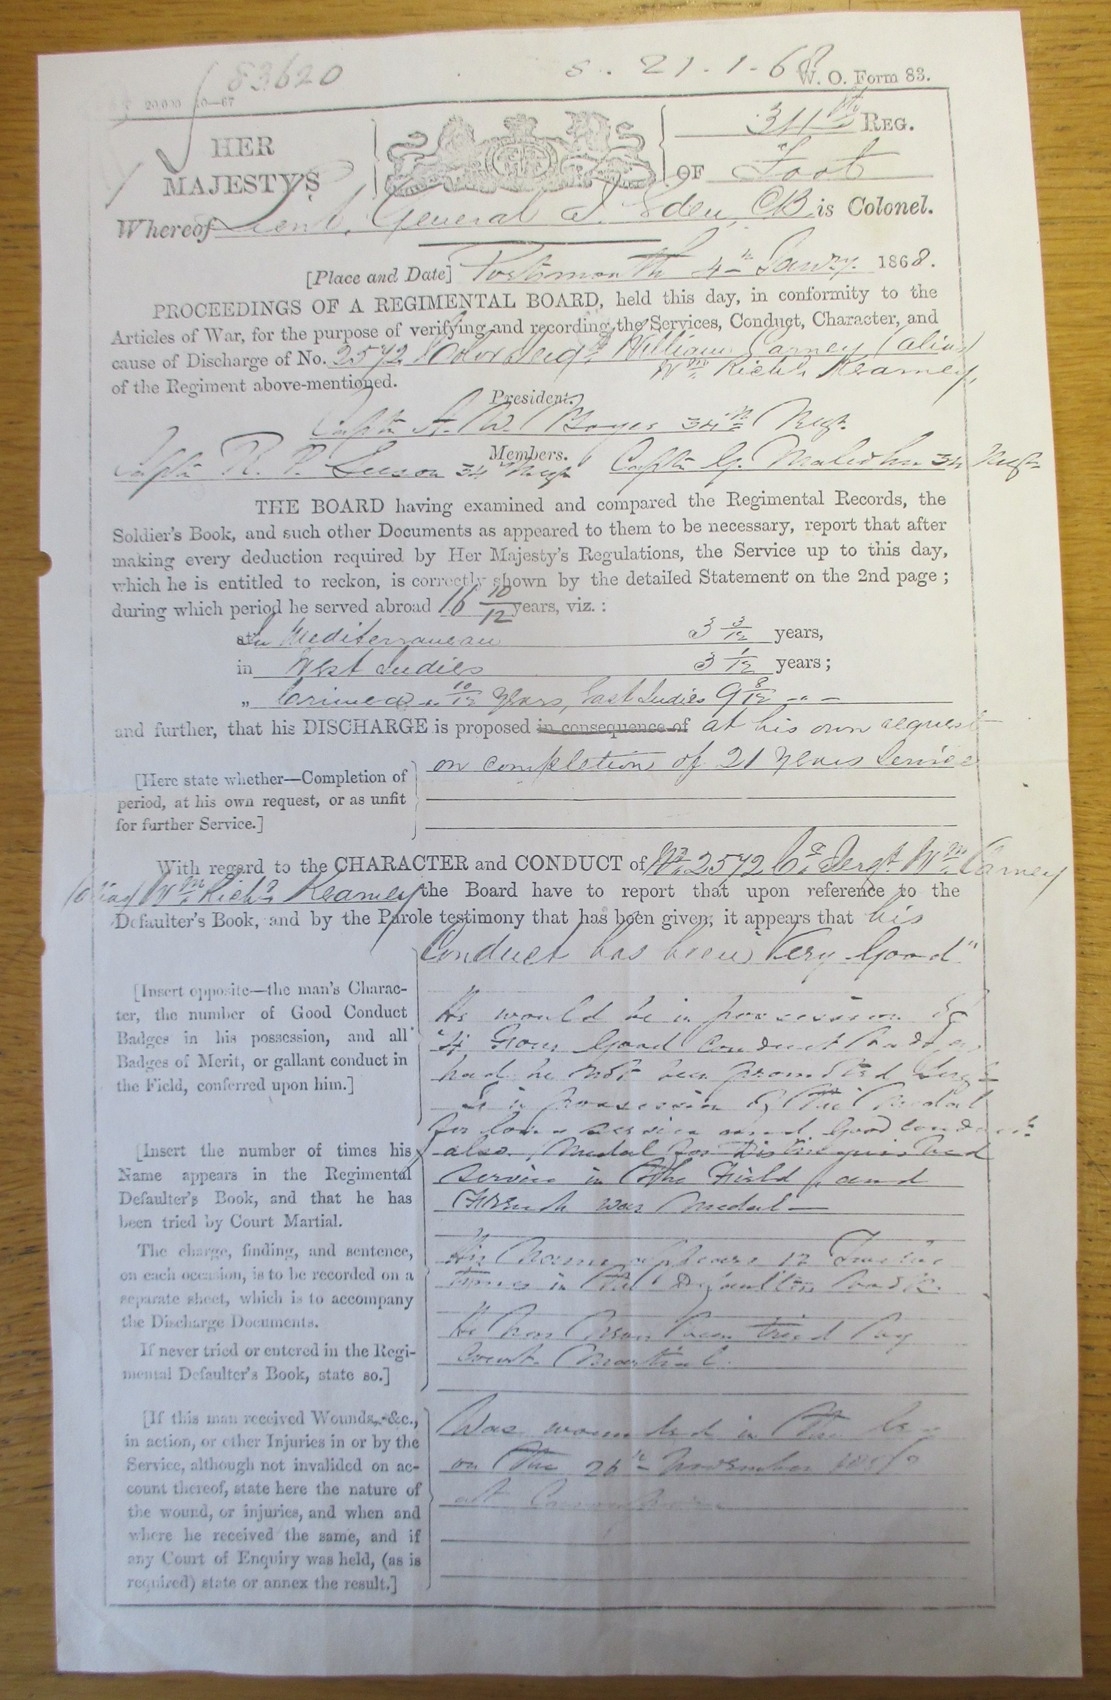 83620
s. 21-1-68
W. O. Form 83.
20,000 10—67
HER MAJESTY'S
34th REG.
OF Foot
Whereof Lieut. General J. Eden, CB. is Colonel.
[Place and Date] Portsmouth 4th Janry. 1868.
PROCEEDINGS OF A REGIMENTAL BOARD, held this day, in conformity to the
Articles of War, for the purpose of verifying and recording the Services, Conduct, Character, and
cause of Discharge of No. 2572 Color Sergt William Carney (alias)
Wm. Richd. Kearney,
of the Regiment above-mentioned.
President.
Captn A. W. Boyce 34th Regt.
Members.
Captn R. P. 34 Regt Captn G. Malcolm 34 Regt
THE BOARD having examined and compared the Regimental Records, the
Soldier's Book, and such other Documents as appeared to them to be necessary, report that after
making every deduction required by Her Majesty's Regulations, the Service up to this day,
which he is entitled to reckon, is correctly shown by the detailed Statement on the 2nd page ;
during which period he served abroad 16 10/12 years, viz. :
at In Mediterranean 3 3/12 years,
in West Indies 3 1/12 years ;
„ Crimea " 10/12 years, East Indies 9 8/12 - " -
and further, that his DISCHARGE is proposed in consequence of at his own request
on completion of 21 Years Service
[Here state whether—Completion of
period, at his own request, or as unfit
for further Service.]
With regard to the CHARACTER and CONDUCT of No. 2572 Cr. Sergt. Wm. Carney
(alias) Wm. Richd Kearney the Board have to report that upon reference to the
Defaulter's Book, and by the Parole testimony that has been given, it appears that his
Conduct has been "Very Good"
[Insert opposite—the man's Charac-
ter, the number of Good Conduct
Badges in his possession, and all
Badges of Merit, or gallant conduct in
the Field, conferred upon him.]
He would be in possession of
"4 Four Good Conduct badges
had he not been promoted Sergt
Is in possession of the Medal
for long service and Good Conduct
also Medal for Distinguished
Service in the Field, and
Turkish war Medal—
[Insert the number of times his
Name appears in the Regimental
Defaulter's Book, and that he has
been tried by Court Martial.
The charge, finding, and sentence,
on each occasion, is to be recorded on a
separate sheet, which is to accompany
the Discharge Documents.
If never tried or entered in the Regi-
mental Defaulter's Book, state so.]
His Name appears 12 Twelve
times in the Defaulters book.
He has never been tried by
Court Martial.
[If this man received Wounds, &c.,
in action, or other Injuries in or by the
Service, although not invalided on ac-
count thereof, state here the nature of
the wound, or injuries, and when and
where he received the same, and if
any Court of Enquiry was held, (as is
required) state or annex the result.]
Was wounded in the
on the 26th November 1857
at Cawnpore.